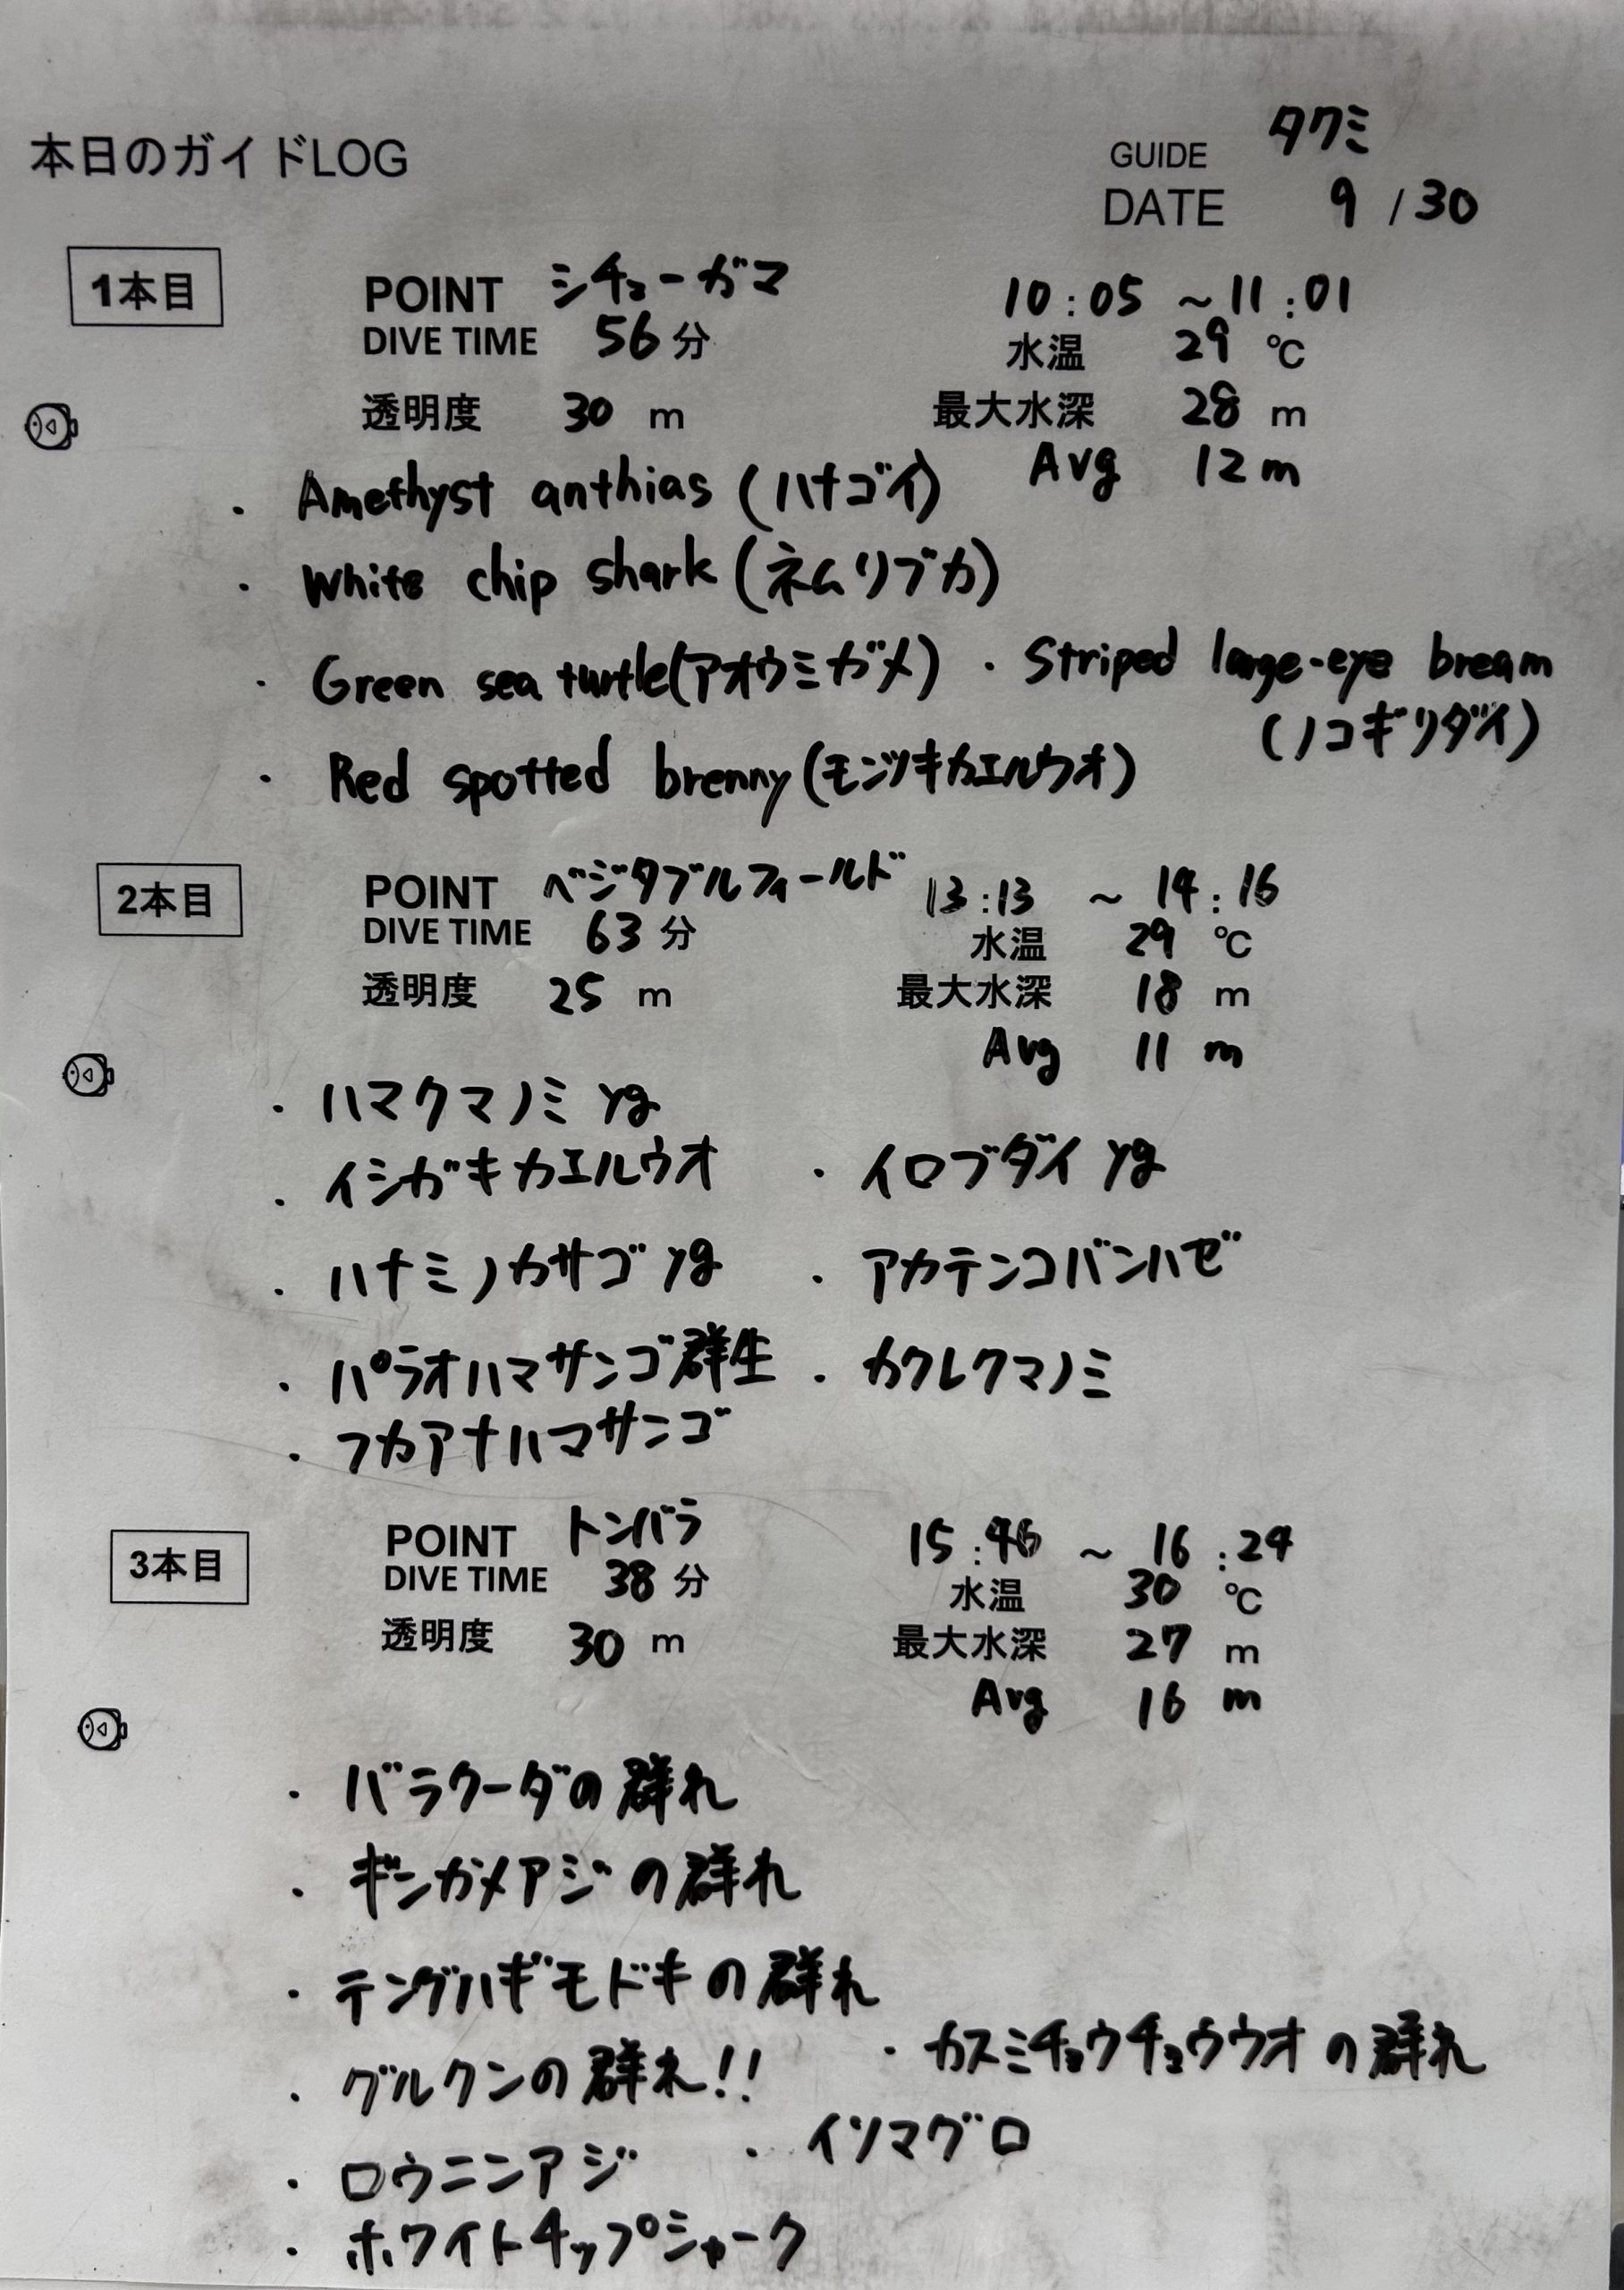 本日のガイドLOG
GUIDE タクミ
DATE 9 / 30
1本目
POINT シチューガマ 10:05 ~ 11:01
DIVE TIME 56 分 水温 29 ℃
透明度 30 m 最大水深 28 m
Avg 12 m
・ Amethyst anthias (ハナゴイ)
・ White chip shark (ネムリブカ)
・ Green sea turtle(アオウミガメ) ・ Striped large-eye bream
(ノコギリダイ)
・ Red spotted brenny (モンツキカエルウオ)
2本目
POINT ベジタブルフィールド 13:13 ~ 14:16
DIVE TIME 63 分 水温 29 ℃
透明度 25 m 最大水深 18 m
Avg 11 m
・ ハマクマノミ yg
・ イシガキカエルウオ ・ イロブダイ yg
・ ハナミノカサゴ yg ・ アカテンコバンハゼ
・ パラオハマサンゴ群生 ・ カクレクマノミ
・ フカアナハマサンゴ
3本目
POINT トンバラ 15:46 ~ 16:24
DIVE TIME 38 分 水温 30 ℃
透明度 30 m 最大水深 27 m
Avg 16 m
・ バラクーダの群れ
・ ギンガメアジの群れ
・ テングハギモドキの群れ
・ グルクンの群れ!! ・ カスミチョウチョウウオの群れ
・ ロウニンアジ ・ イソマグロ
・ ホワイトチップシャーク